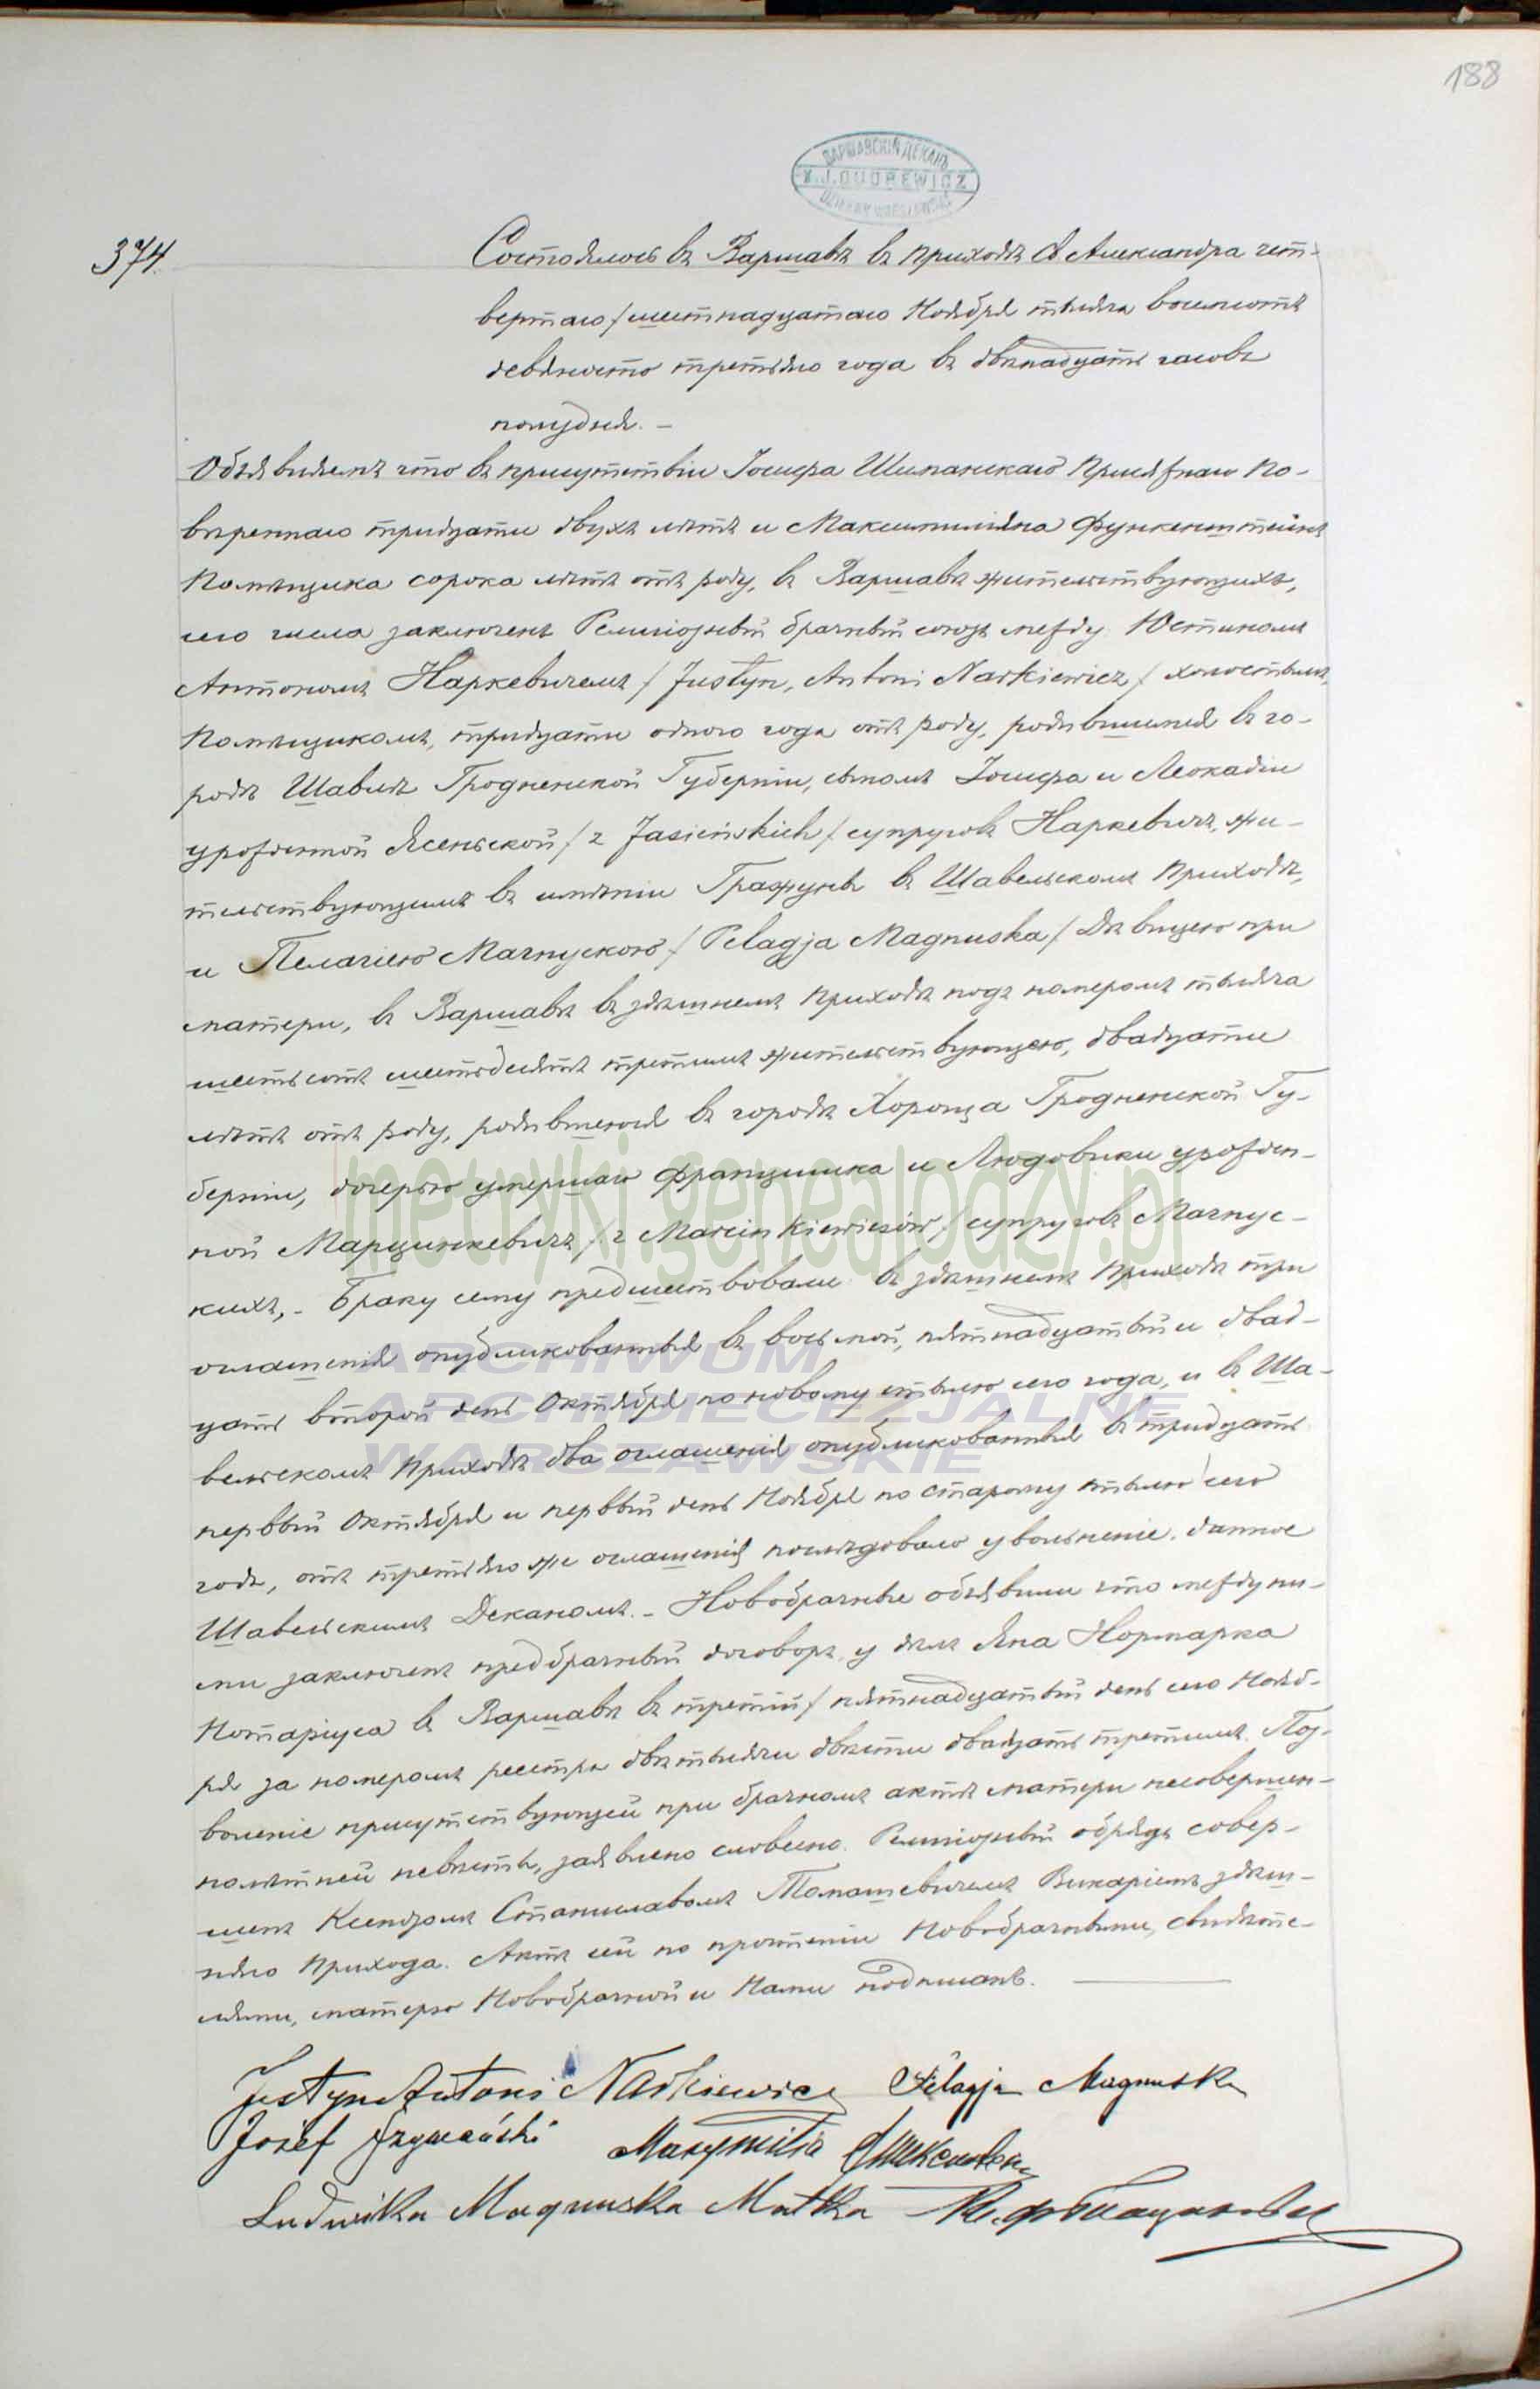 188
ВАРШАВСКІЙ ДЕКАНЪ
374.
Состоялось въ Варшавѣ въ приходѣ Св Александра чет-
вертаго / шестнадцатаго Ноября тысяча восемьсотъ
девяносто третьяго года въ двѣнадцать часовъ
полудня. –
Объявляемъ что въ присутствіи Іосифа Шиманскаго Присяжнаго По-
вѣреннаго тридцати двухъ лѣтъ и Максимиліяна Функенштейнъ
Помѣщика сорока лѣтъ отъ роду, въ Варшавѣ жительствующихъ,
сего числа заключенъ Религіозный брачный союзъ между Юстиномъ
Антономъ Наркевичемъ / Justyn, Antoni Narkiewicz / холостымъ,
Помѣщикомъ, тридцати одного года отъ роду, родившимся въ го-
родѣ Шавлѣ Гродненской Губерніи, сыномъ Іосифа и Леокадіи
урожденной Ясеньской / z Jasieńskich / супруговъ Наркевичъ, жи-
тельствующимъ въ имѣніи Гражуны въ Шавельскомъ Приходѣ,
и Пелагіею Магнускою / Pelagja Magnuska / Дѣвицею при
матери, въ Варшавѣ въ здѣшнемъ приходѣ подъ номеромъ тысяча
шестьсотъ шестьдесятъ третьимъ жительствующею, двадцати
лѣтъ отъ роду, родившеюся въ городѣ Хороща Гродненской Гу-
берніи, дочерью умершаго Францишка и Людовики урожден-
ной Марцинкевичъ / z Marcinkiewiczów / супруговъ Магнус-
кихъ, – Браку сему предшествовали въ здѣшнемъ приходѣ три
оглашенія опубликованныя въ восьмой, пятнадцатый и двад-
цать второй день Октября по новому стилю сего года, и въ Ша-
вельскомъ Приходѣ два оглашенія опубликованныя въ тридцать
первый Октября и первый день Ноября по старому стилю сего
года, отъ третьяго же оглашенія послѣдовало увольненіе данное
Шавельскимъ Деканомъ. – Новобрачные объявили что между ни-
ми заключенъ предбрачный договоръ, у дѣлъ Яна Нормарка
Нотаріуса въ Варшавѣ въ третій / пятнадцатый день сего Нояб-
ря за номеромъ реестра двѣ тысячи двѣсти двадцать третьимъ. Поз-
воленіе присутствующей при брачномъ актѣ матери несовершен-
нолѣтней невѣсты, заявлено словесно. Религіозный обрядъ совер-
шенъ Ксендзомъ Станиславомъ Томашевичемъ Викаріемъ здѣш-
няго Прихода. Актъ сей по прочтеніи Новобрачными, свидѣте-
лями, матерью Новобрачной и Нами подписанъ.
Justyn Antoni Narkiewicz Pelagja Magnuska
Józef Szymański Maxymilian
Ludwika Magnuska Matka
metryki.genealodzy.pl
ARCHIWUM
ARCHIDIECEZJALNE
WARSZAWSKIE